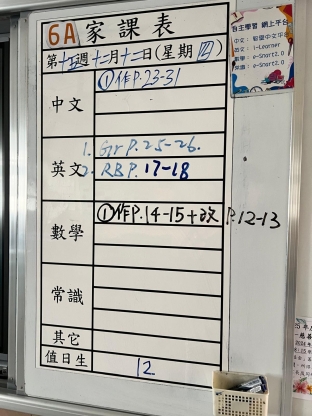 6A 家課表
第十五週十二月十二日(星期四)
中文
①作P.23-31
英文
1. Gr P.25-26.
2. RB P. 17-18
數學
①作P.14-15+改 P.12-13
常識
其它
值日生
12
自主學習 網上平台
英文: i-Learner
數學: e-Smart2.0
常識: e-Smart2.0